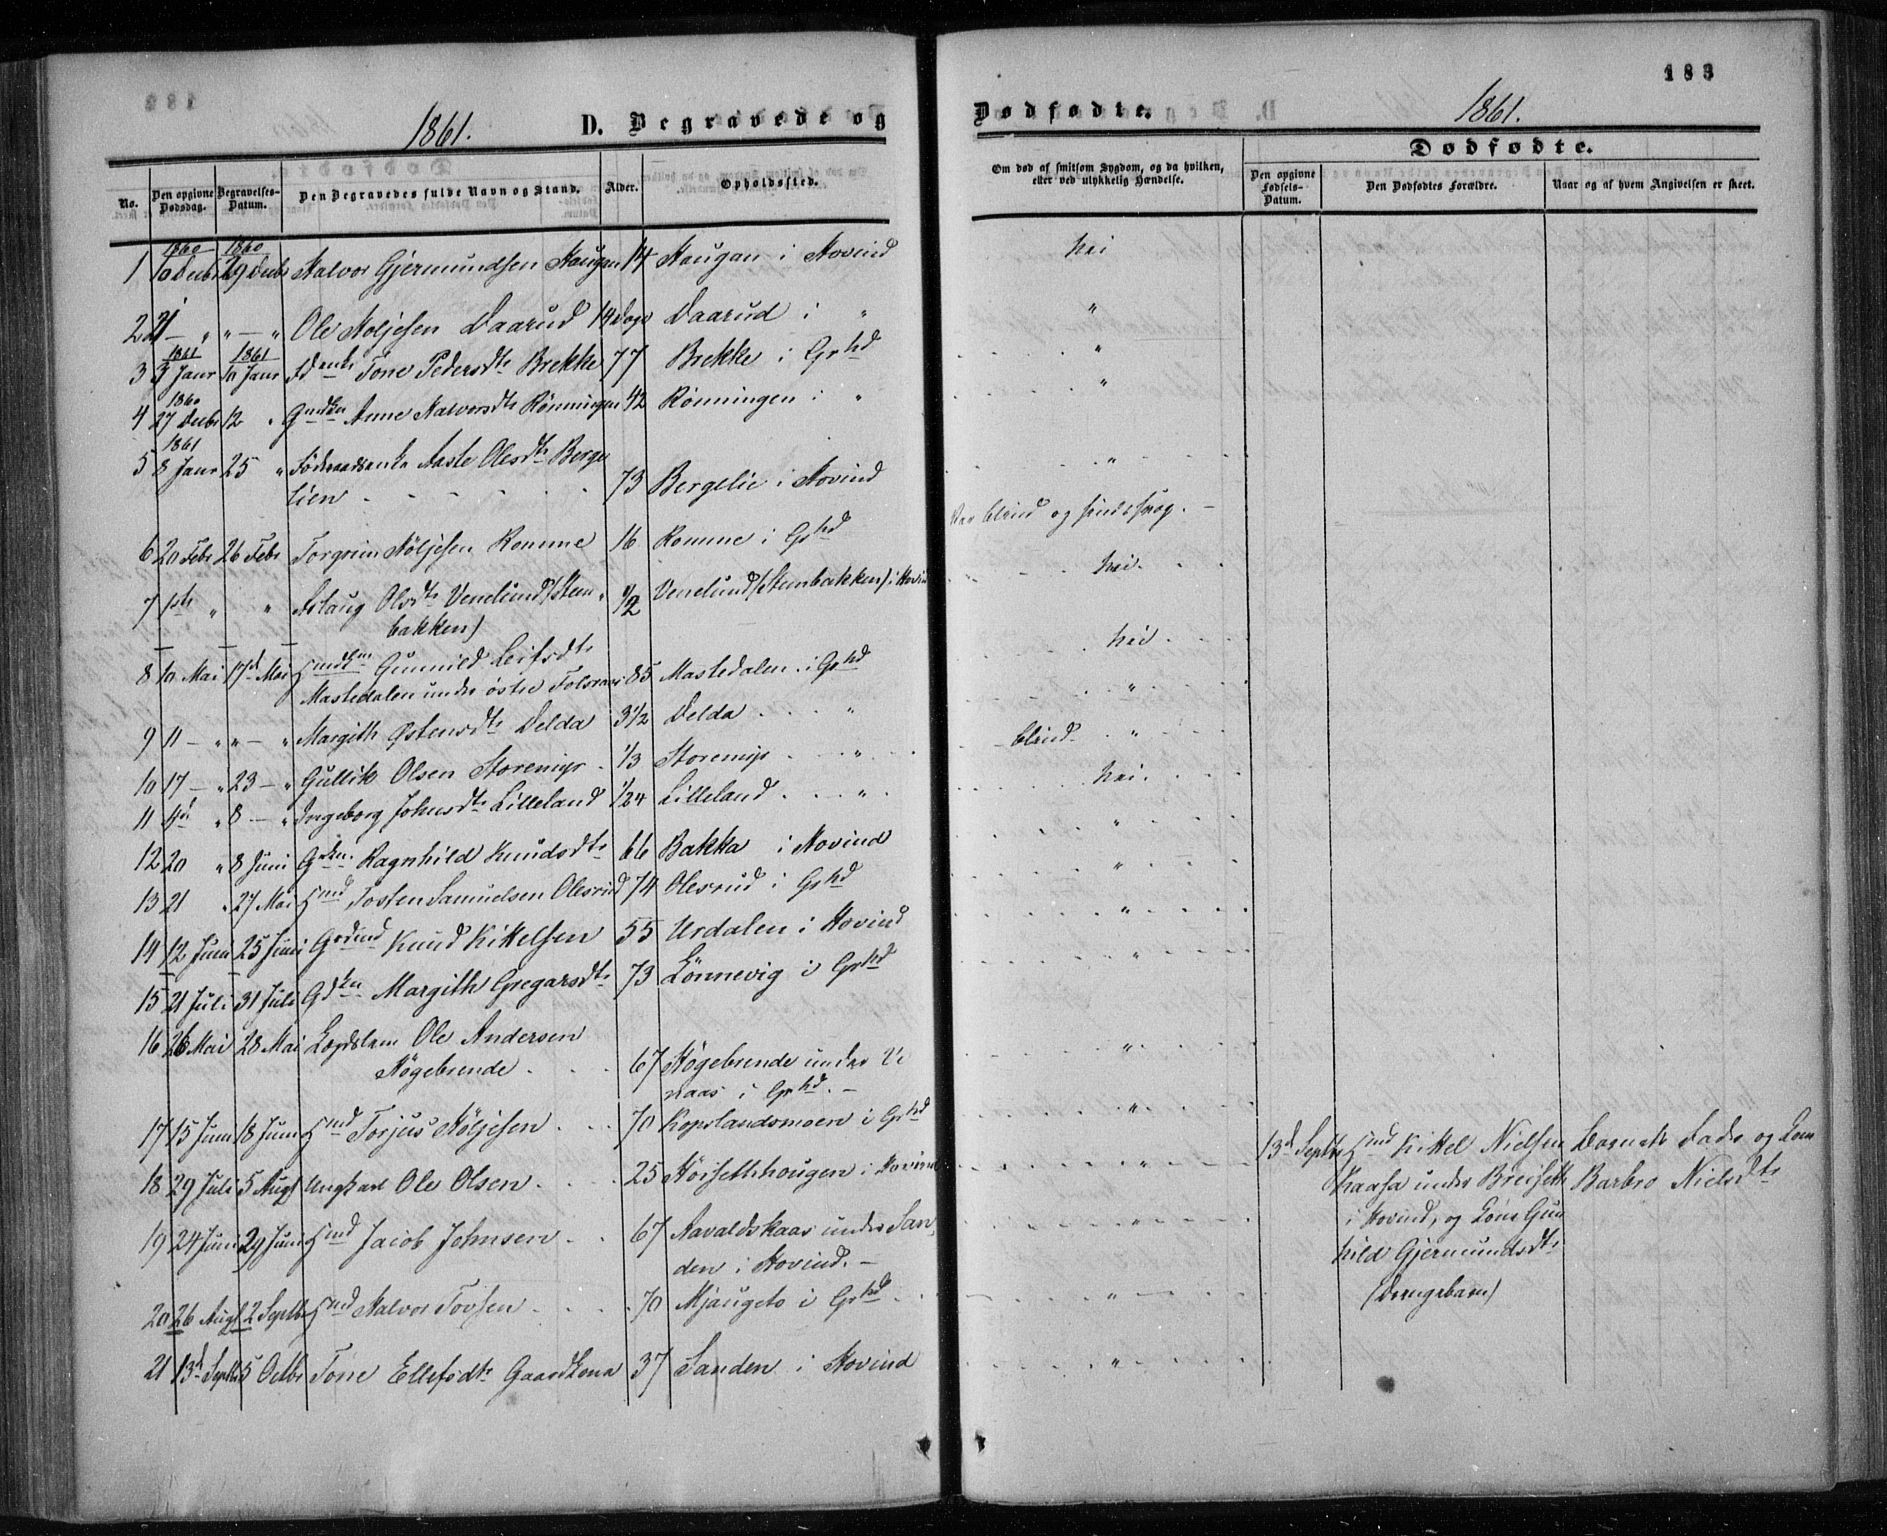 183
1861. D. Begravede og Dødfødte. 1861.
No. Den opgivne Dødsdag. Begravelses-Datum. Den Begravedes fulde Navn og Stand. Alder. Opholdssted. Om død af smitsom Sygdom, og da hvilken, eller ved ulykkelig Hændelse.
Dødfødte.
Den opgivne Fødsels-Datum. Den Dødfødtes Forældre. Naar og af hvem Angivelsen er skeet.
1860 1860
1 10 Decbr 29 Decbr Halvor Gjermundsen Haugen 14 Haugan i Hovind nei
2 21 — " " — " Ole Høljesen Daarud 14 Dage Daarud i " "
1861 1861
3 3 Janr 10 Janr Fdenke Tone Pedersdtr Brekke 77 Brekke i Grhd "
1860
4 27 Decbr 12 " Anne Halvorsdtr Rönningen 42 Rönningen i " "
1861
5 8 Janr 25 " Föderaadsenke Aaste Olesdtr Berge
lien 73 Bergelie i Hovind "
6 20 Febr 26 Febr Torgrim Höljesen Romme 16 Romme i Grhd Var blind og
7 " " Aslaug Olsdtr Venelund (Steen
bakken) 1/2 Venelund (Steenbakken) i Hovind nei
8 10 Mai 17d Mai Gunnild Leifsdtr
Mastedalen under østre 85 Mastedalen i Grhd nei
9 11 — " " — " Margith Østensdtr Delda 3 1/2 Delda "
10 17 — " 23 — " Gullik Olsen Storemyr 1/3 Storemyr " blind "
11 4d " 8 — " Ingeborg Johnsdtr Lilleland 1/24 Lilleland " nei
12 20 " 8 Juni Ragnhild Knudsdtr 66 Bakka i Hovind "
13 21 " 27 Mai Hmd Tosten Samuelsen Olesrud 74 Olesrud i Grhd "
14 12 Juni 25 Juni Knud Kittelsen 55 Urdalen i Hovind "
15 21 Juli 31 Juli Margith Gregarsdtr 73 Lönnevig i Grhd "
16 26 Mai 28 Mai Lægdslem Ole Andersen
Høgebrende 67 Høgebrende under Ve
naas i Grhd. — "
17 15 Juni 18 Juni Hmd Torjus Höljesen 70 Kopslandsmoen i Grhd "
18 29 Juli 5 Augt Ungkarl Ole Olsen 25 Höisethhougen i Hovind "
19 24 Juni 29 Juni Hmd Jacob Johnsen 67 Aavaldskaas under San
den i Hovind. — "
20 26 Augt 2 Septbr Hmd Halvor Tovsen 70 Mjaugeto i Grhd "
21 13d Septbr 5 Octbr Tone Ellefsdtr Gaardkona 37 Sanden i Hovind "
13d Septbr Hmd Kittel Nielsen
Kaasa under Breiseth
i Hovind, og Kone Gun
hild Gjermundsdtr
(Drengebarn)
Barnets Fader og
Barbro Nielsdtr